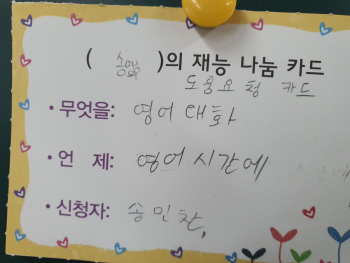 (        )의 재능 나눔 카드
도움요청 카드
• 무엇을: 영어 대화
• 언 제: 영어 시간에
• 신청자: 송민찬,